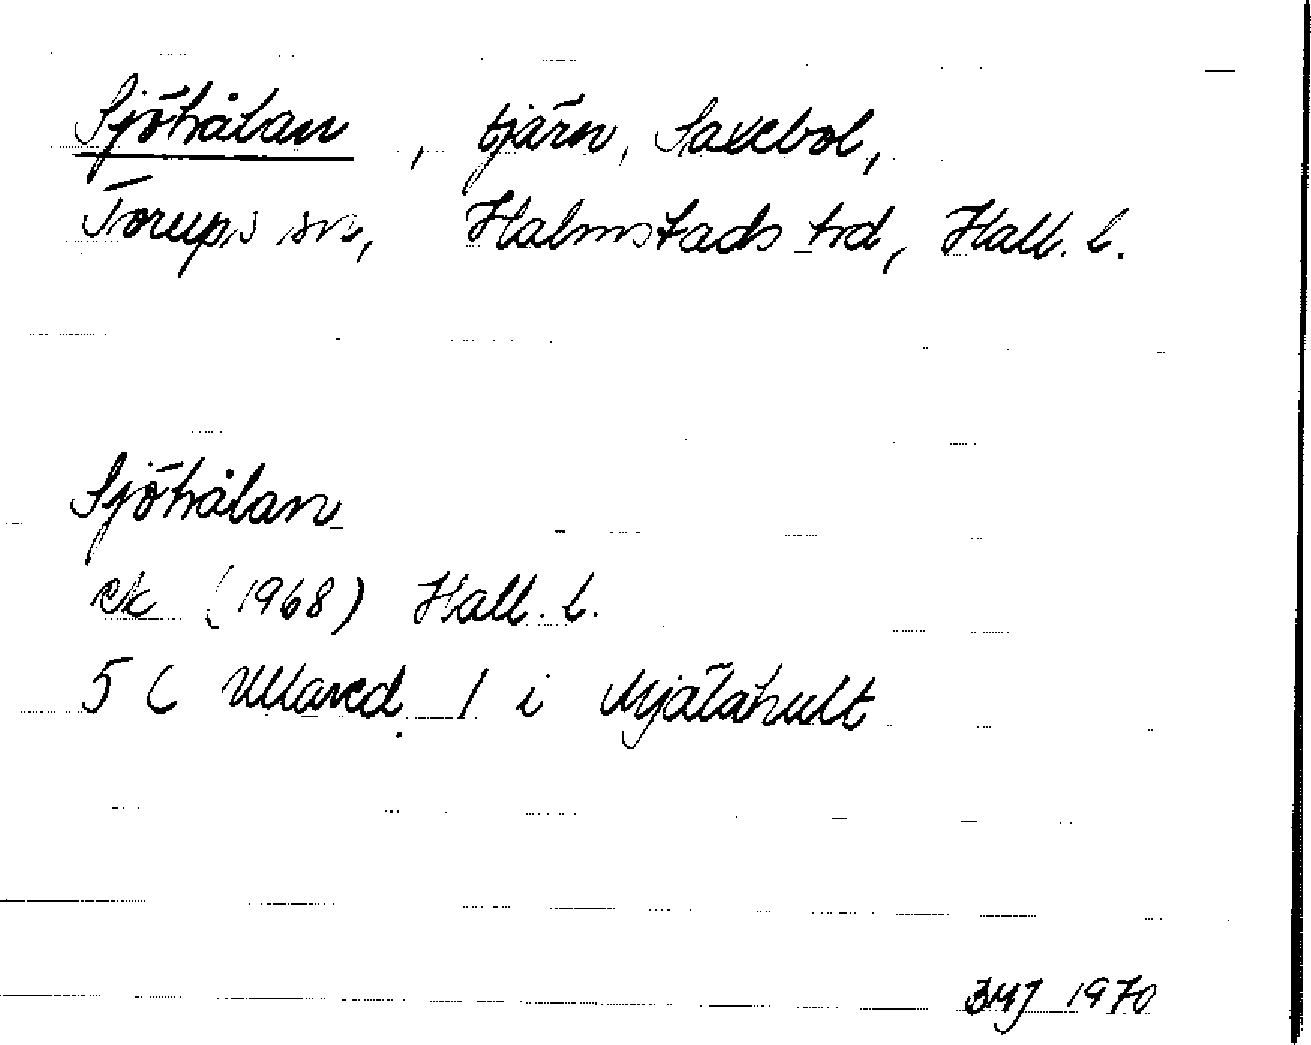 Sjöhålan, tjärn, Saxebol,
Torups sn, Halmstads hd, Hall. l.
Sjöhålan
ek (1968) Hall. l.
5 C Ullared 1 i Mjälahult
BMJ 1970